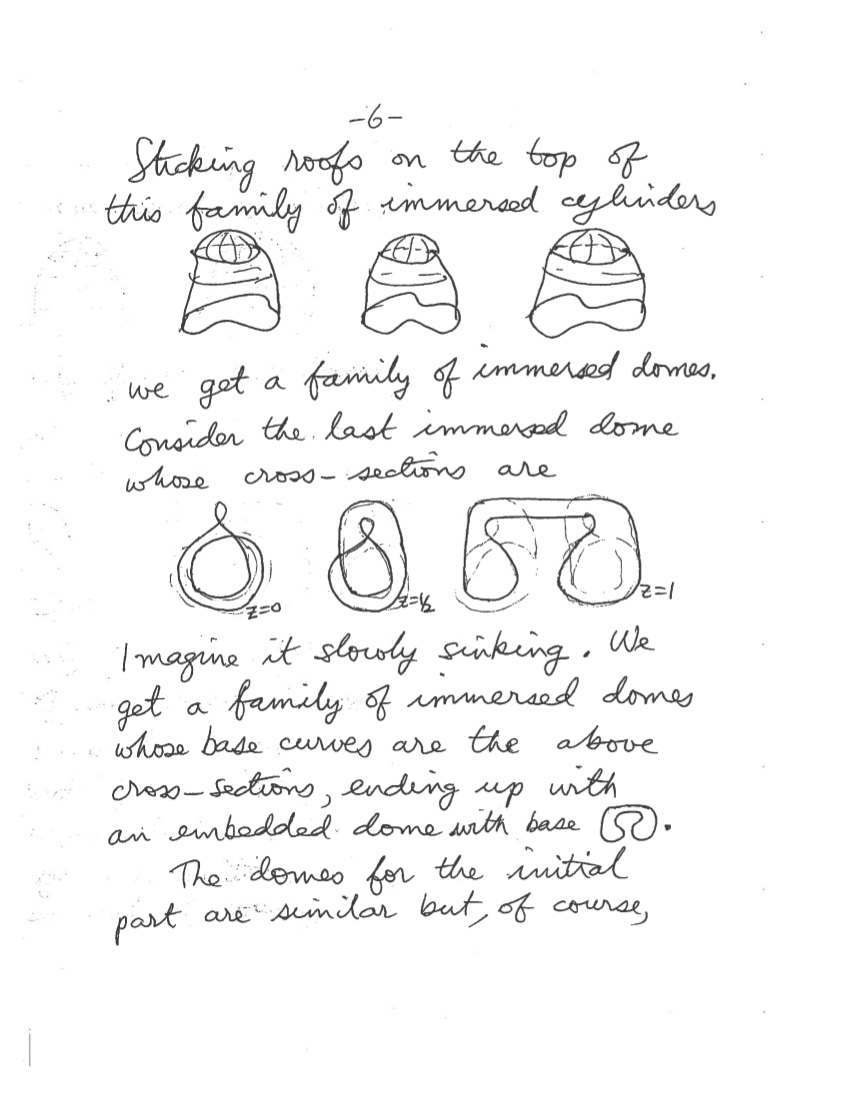 -6-
Sticking roofs on the top of
this family of immersed cylinders
we get a family of immersed domes.
Consider the last immersed dome
whose cross-sections are
z=0 z=½ z=1
Imagine it slowly sinking. We
get a family of immersed domes
whose base curves are the above
cross-sections, ending up with
an embedded dome with base .
The domes for the initial
part are similar but, of course,